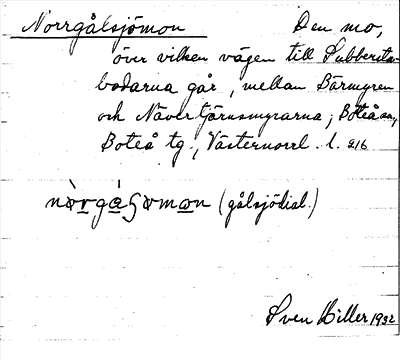 Norrgålsjömon Den mo,
över vilken vägen till Subbersta-
bodarna går, mellan Bärmyren
och Nävertjärnsmyrarna; Boteå sn,
Boteå tg., Västernorrl. l. 216
(gålsjödial.)
Sven Hiller 1932